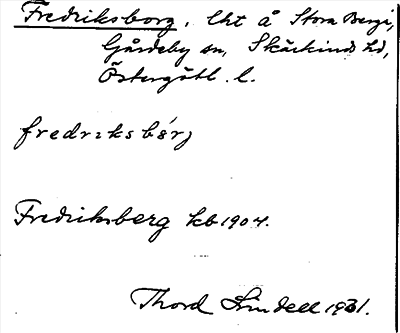 Fredriksborg, lht å Stora Bergi,
Gårdeby sn, Skärkinds hd,
Östergötl. l.
fredriksbórj
Fredriksberg kb 1904.
Thord Lindell 1931.